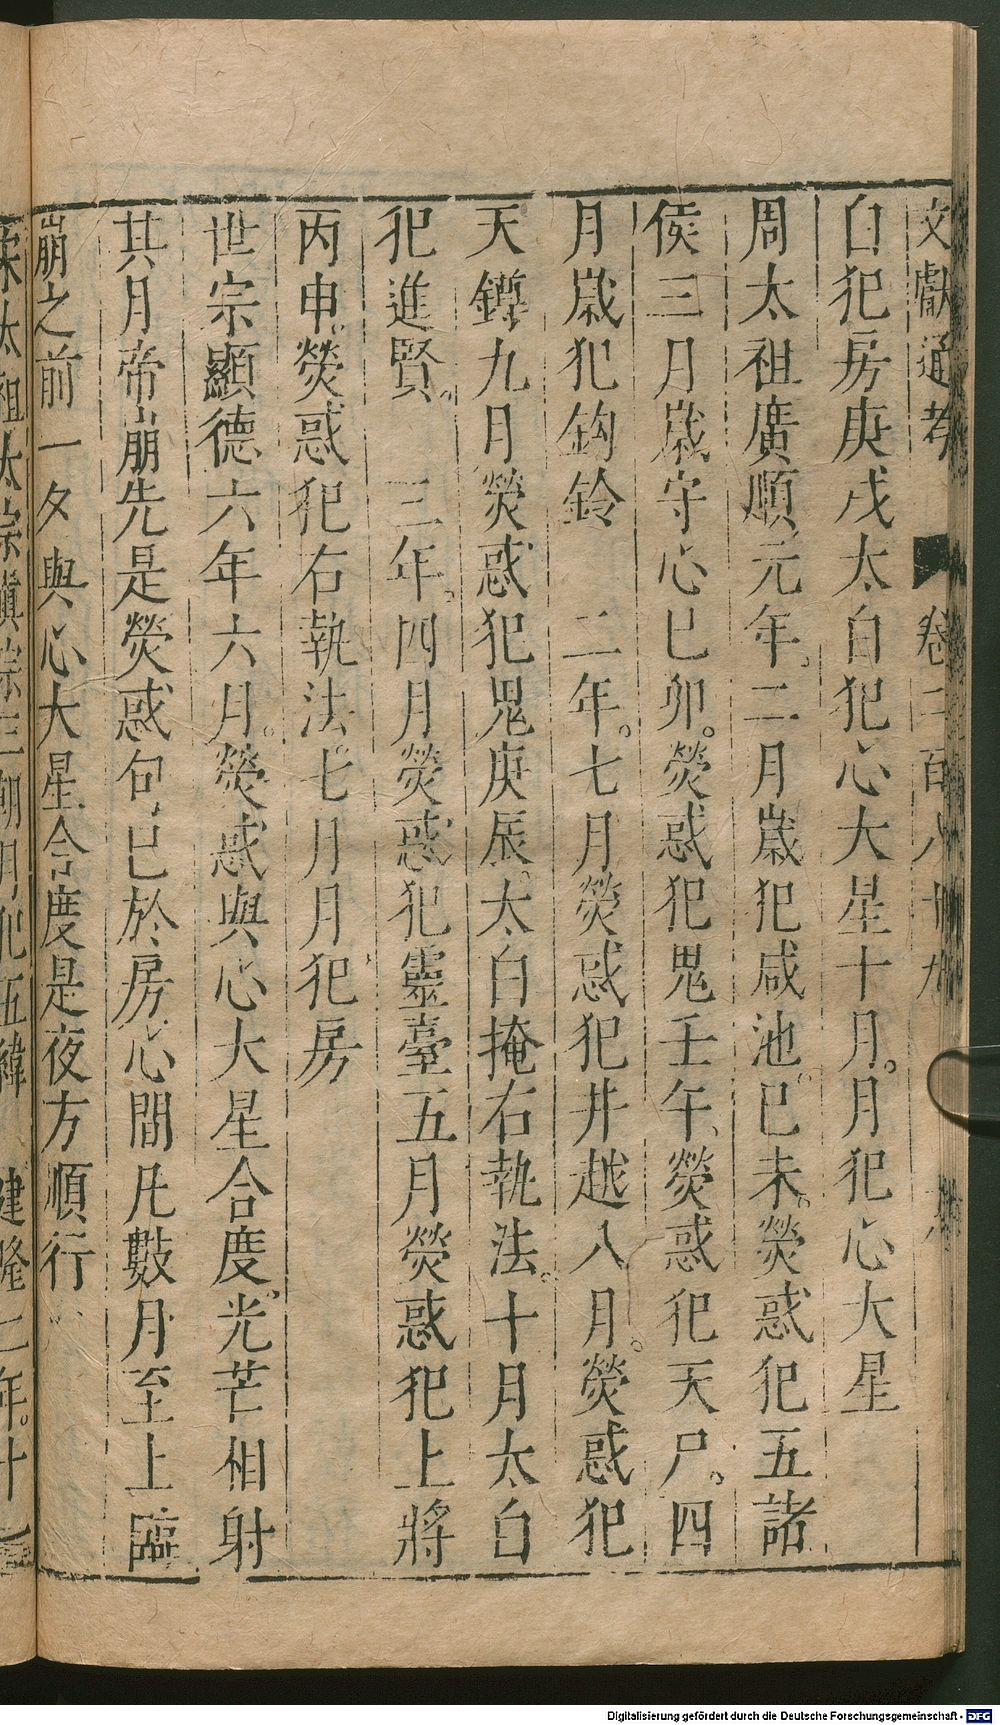 文獻通考 卷二百八十九
白犯房庚戌太白犯心大星十月。月犯心大星
周太祖廣順元年。二月歲犯咸池。己未。熒惑犯五諸
侯三月歲守心己卯。熒惑犯鬼壬午、熒惑犯天尸。四
月歲犯鈎鈐 二年。七月熒惑犯井越八月。熒惑犯
天鐏九月熒惑犯鬼庚辰。太白掩右執法。十月太白
犯進賢。 三年。四月熒惑犯靈臺五月熒惑犯上將
丙申。熒惑犯右執法。七月月犯房
世宗顯德六年六月。熒惑與心大星合度。光芒相射
其月帝崩先是熒惑句巳於房心間凡數月至上臨
崩之前一夕與心大星合度是夜方順行
宋太祖太宗眞宗三朝月犯五緯 建隆二年。十
Digitalisierung gefördert durch die Deutsche Forschungsgemeinschaft - DFG